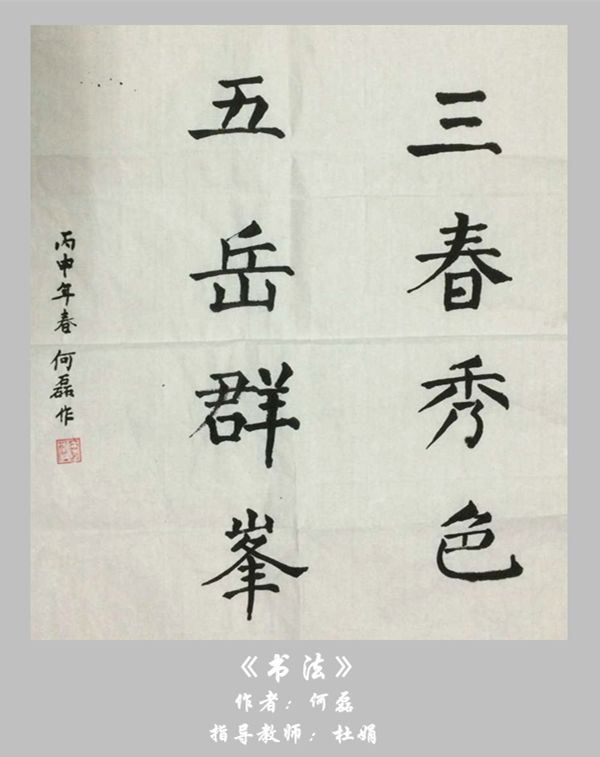 三春秀色
五岳群峯
丙申年春何磊作
《书法》
作者：何磊
指导教师：杜娟